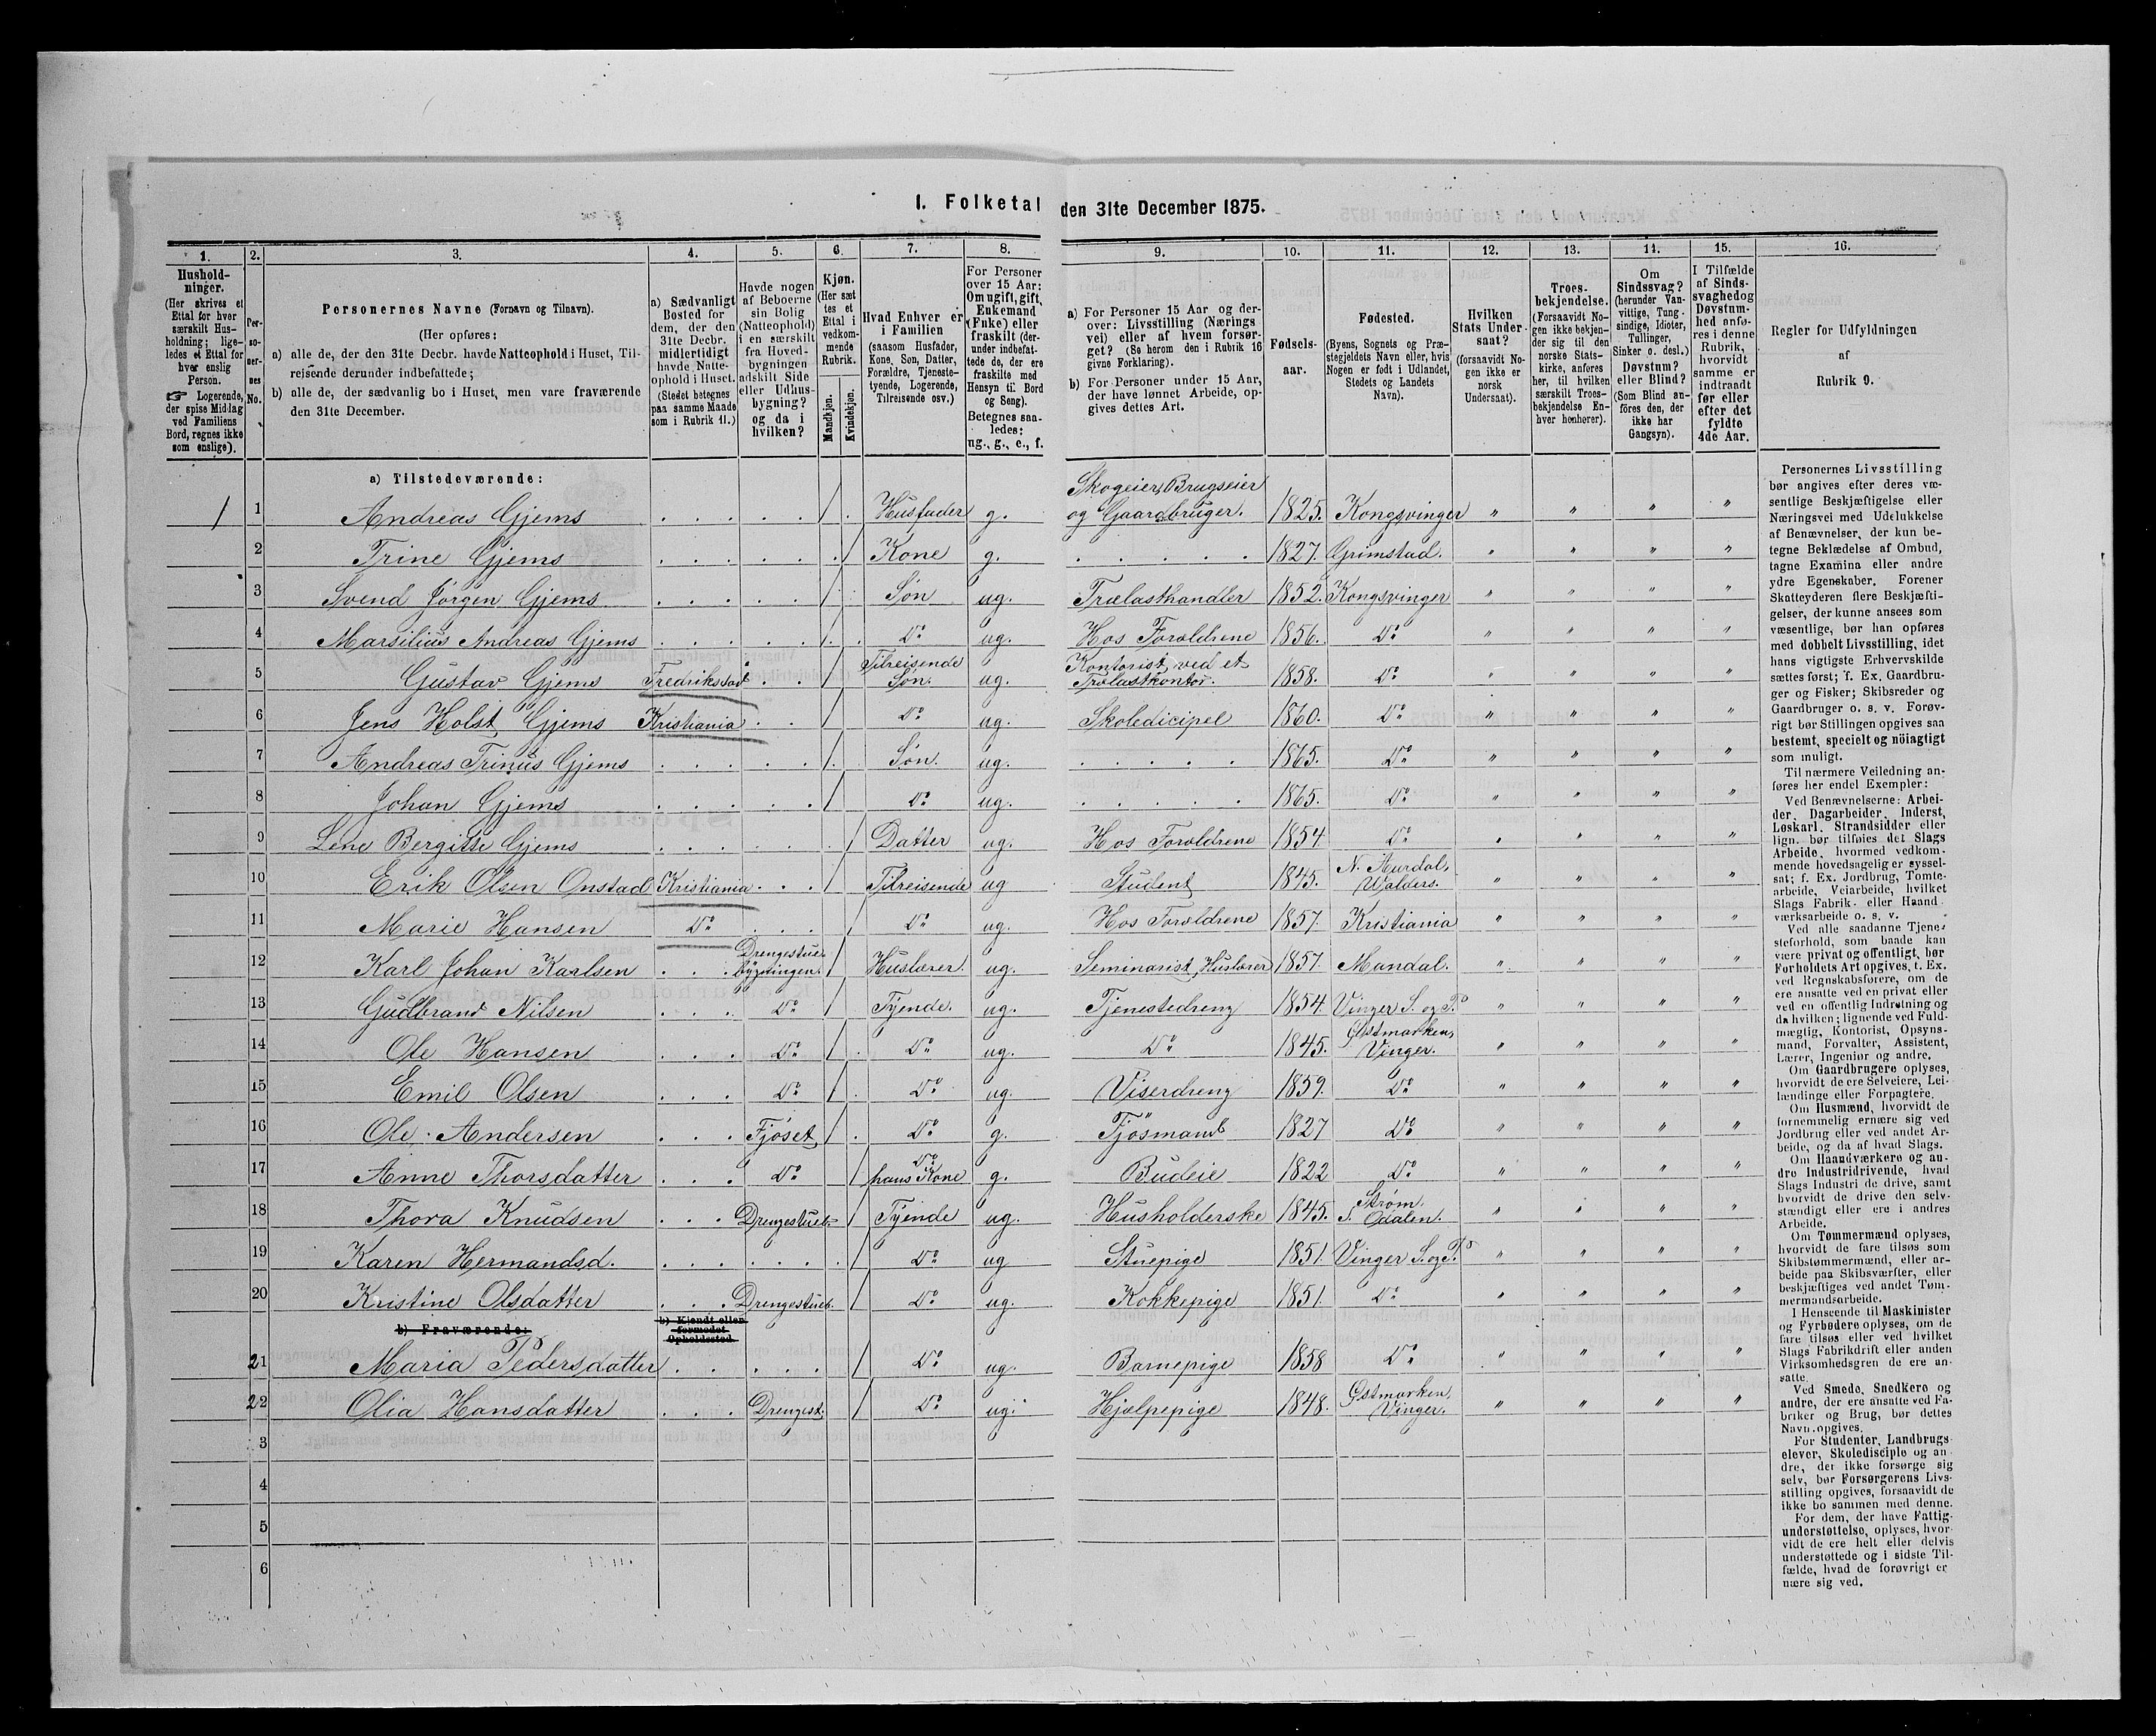 I. Folketal den 31te December 1875.
1. 2. 3. 4. 5. 6. 7. 8. 9. 10. 11. 12. 13. 14. 15. 16.
Hushold-
ninger.
(Her skrives et
Ettal for hver
særskilt Hus-
holdning; lige-
ledes et Ettal for
hver enslig
Person.
☞ Logerende,
der spise Middag
ved Familiens
Bord, regnes ikke
som enslige).
Per-
so-
ner-
nes
No.
Personernes Navne (Fornavn og Tilnavn).
(Her opføres:
a) alle de, der den 31te Decbr. havde Natteophold i Huset, Til-
reisende derunder indbefattede;
b) alle de, der sædvanlig bo i Huset, men vare fraværende
den 31te December.
a) Sædvanligt
Bosted for
dem, der den
31te Decbr.
midlertidigt
havde Natte-
ophold i Huset.
(Stedet betegnes
paa samme Maade
som i Rubrik 11.)
Havde nogen
af Beboerne
sin Bolig
(Natteophold)
i en særskilt
fra Hoved-
bygningen
adskilt Side
eller Udhus-
bygning?
og da i
hvilken?
Kjøn.
(Her sæt
tes et
Ettal i
vedkom-
mende
Rubrik.
Mandkjøn.
Kvindekjøn.
Hvad Enhver er
i Familien
(saasom Husfader,
Kone, Søn, Datter,
Forældre, Tjeneste-
tyende, Logerende,
Tilreisende osv.)
For Personer
over 15 Aar:
Om ugift, gift,
Enkemand
(Enke) eller
fraskilt (der-
under indbefat-
tede de, der ere
fraskilte med
Hensyn til Bord
og Seng).
Betegnes saa-
ledes:
ug., g., e., f.
a) For Personer 15 Aar og der-
over: Livsstilling (Nærings
vei) eller af hvem forsør-
get? (Se herom den i Rubrik 16
givne Forklaring).
b) For Personer under 15 Aar,
der have lønnet Arbeide, op-
gives dettes Art.
Fødsels-
aar.
Fødested.
(Byens, Sognets og Præ-
stegjeldets Navn eller, hvis
Nogen er født i Udlandet,
Stedets og Landets
Navn).
Hvilken
Stats Under-
saat?
(forsaavidt No-
gen ikke er
norsk
Undersaat).
Troes-
bekjendelse.
(Forsaavidt No-
gen ikke bekjen-
der sig til den
norske Stats-
kirke, anføres
her, til hvilken
særskilt Troes-
bekjendelse En-
hver henhører).
Om
Sindssvag?
(herunder Van-
vittige, Tung-
sindige, Idioter,
Tullinger,
Sinker o. desl.)
Døvstum?
eller Blind?
(Som Blind an-
föres den, der
ikke har
Gangsyn).
I Tilfælde
af Sinds-
svaghedog
Døvstum-
hed anfø-
res i denne
Rubrik,
hvorvidt
samme er
indtraadt
før eller
efter det
fyldte
4de Aar.
Regler for Udfyldningen
af
Rubrik 9.
a) Tilstedeværende:
1 1 Andreas Gjems 1 Husfader g. Skogeier, Brugseier og Gaardbruger. 1825. Kongsvinger " " " "
2 Trine Gjems 1 Kone g. 1827. Grimstad. " " " "
3 Svend Jørgen Gjems 1 Søn ug. Trælasthandler 1852. Kongsvinger " " " "
4 Marsilius Andreas Gjems 1 Do ug. Hos Forældrene 1856. Do " " " "
5 Gustav Gjems Fredriksstad 1 Tilreisende Søn. ug. Kontorist ved et Trælastkontor. 1858. Do " " " "
6 Jens Holst Gjems Kristiania 1 Do ug. Skoledicipel 1860. Do " " " "
7 Andreas Trinus Gjems 1 Søn. ug. 1865. Do " " " "
8 Johan Gjems 1 Do ug. 1865. Do " " " "
9 Lene Bergitte Gjems 1 Datter ug. Hos Forældrene 1854 Do " " " "
10 Erik Olsen Onstad Kristiania 1 Tilreisende ug Student 1845. N. Aurdal, Walders. " " " "
11 Marie Hansen Do 1 Do ug. Hos Forældrene 1857. Kristiania " " " "
12 Karl Johan Karlsen Drengestue bygningen. 1 Huslærer. ug. Seminarist, Huslærer 1857. Mandal. " " " "
13 Gudbrand Nilsen Do 1 Tyende. ug. Tjenestedreng 1854. Vinger S. og P. " " " "
14 Ole Hansen Do 1 Do ug. Do 1845. Østmarken, Vinger. " " " "
15 Emil Olsen Do 1 Do ug. Viserdreng 1859. Do " " " "
16 Ole Andersen Fjøset 1 Do g. Fjösmand 1827 Do " " " "
17 Anne Thorsdatter Do 1 Do hans Kone g. Budeie 1822 Do " " " "
18 Thora Knudsen Drengestueb. 1 Tyende ug. Husholderske 1845. Strøm, S. Odalen. " " " "
19 Karen Hermandsd. 1 Do ug Stuepige 1851. Vinger S. og P. " " " "
20 Kristine Olsdatter Drengestueb. 1 Do ug. Kokkepige 1851. Do " " " "
b) Fraværende: b) Kjendt eller formodet Opholdssted.
21 Maria Pedersdatter 1 Do ug. Barnepige 1858 Do " " " "
22 Olia Hansdatter Drengest. 1 Do ug. Hjælpepige 1848. Østmarken, Vinger. " " " "
3
4
5
6
Personernes Livsstilling
bør angives efter deres væ-
sentlige Beskjæftigelse eller
Næringsvei med Udelukkelse
af Benævnelser, der kun be-
tegne Beklædelse af Ombud,
tagne Examina eller andre
ydre Egenskaber. Forener
Skatteyderen flere Beskjæfti-
gelser, der kunne ansees som
væsentlige, bør han opføres
med dobbelt Livsstilling, idet
hans vigtigste Erhvervskilde
sættes først; f. Ex. Gaardbru-
ger og Fisker; Skibsreder og
Gaardbruger o. s. v. Forøv-
rigt bør Stillingen opgives saa
bestemt, specielt og nöiagtigt
som muligt.
Til nærmere Veiledning an-
føres her endel Exempler:
Ved Benævnelserne: Arbei-
der, Dagarbeider, Inderst,
Løskarl, Strandsidder eller
lign. bør tilføies det Slags
Arbeide, hvormed vedkom-
mende hovedsagelig er syssel-
sat; f. Ex. Jordbrug, Tomte-
arbeide, Veiarbeide, hvilket
Slags Fabrik- eller Haand
værksarbeide o. s. v.
Ved alle saadanne Tjene-
steforhold, som baade kan
være privat og offentligt, bør
Forholdets Art opgives, t. Ex.
ved Regnskabsførere, om de
ere ansatte ved en privat eller
ved en offentlig Indretning og
da hvilken; lignende ved Fuld-
mægtig, Kontorist, Opsyns-
mand, Forvalter, Assistent,
Lærer, Ingeniør og andre.
Om Gaardbrugere oplyses,
hvorvidt de ere Selveiere, Lei-
lændinge eller Forpagtere.
Om Husmænd, hvorvidt de
fornemmelig ernære sig ved
Jordbrug eller ved andet Ar-
beide, og da af hvad Slags.
Om Haandværkere og an-
dre Industridrivende, hvad
Slags Industri de drive, samt
hvorvidt de drive den selv-
stændigt eller ere i andres
Arbeide.
Om Tømmermænd oplyses,
hvorvidt de fare tilsøs som
Skibstømmermænd, eller ar-
beide paa Skibsværfter, eller
beskjæftiges ved andet Tøm-
mermandsarbeide.
I Henseende til Maskinister
og Fyrbødere oplyses, om de
fare tilsøs eller ved hvilket
Slags Fabrikdrift eller anden
Virksomhedsgren de ere an-
satte.
Ved Smede, Snedkere og
andre, der ere ansatte ved Fa-
briker og Brug, bør dettes
Navn opgives.
For Studenter, Landbrugs-
elever, Skoledisciple og an-
dre, der ikke forsørge sig
selv, bør Forsørgerens Livs-
stilling opgives, forsaavidt de
ikke bo sammen med denne.
For dem, der have Fattig-
understøttelse, oplyses, hvor-
vidt de ere helt eller delvis
understøttede og i sidste Til-
fælde, hvad de forøvrigt er
nære sig ved.